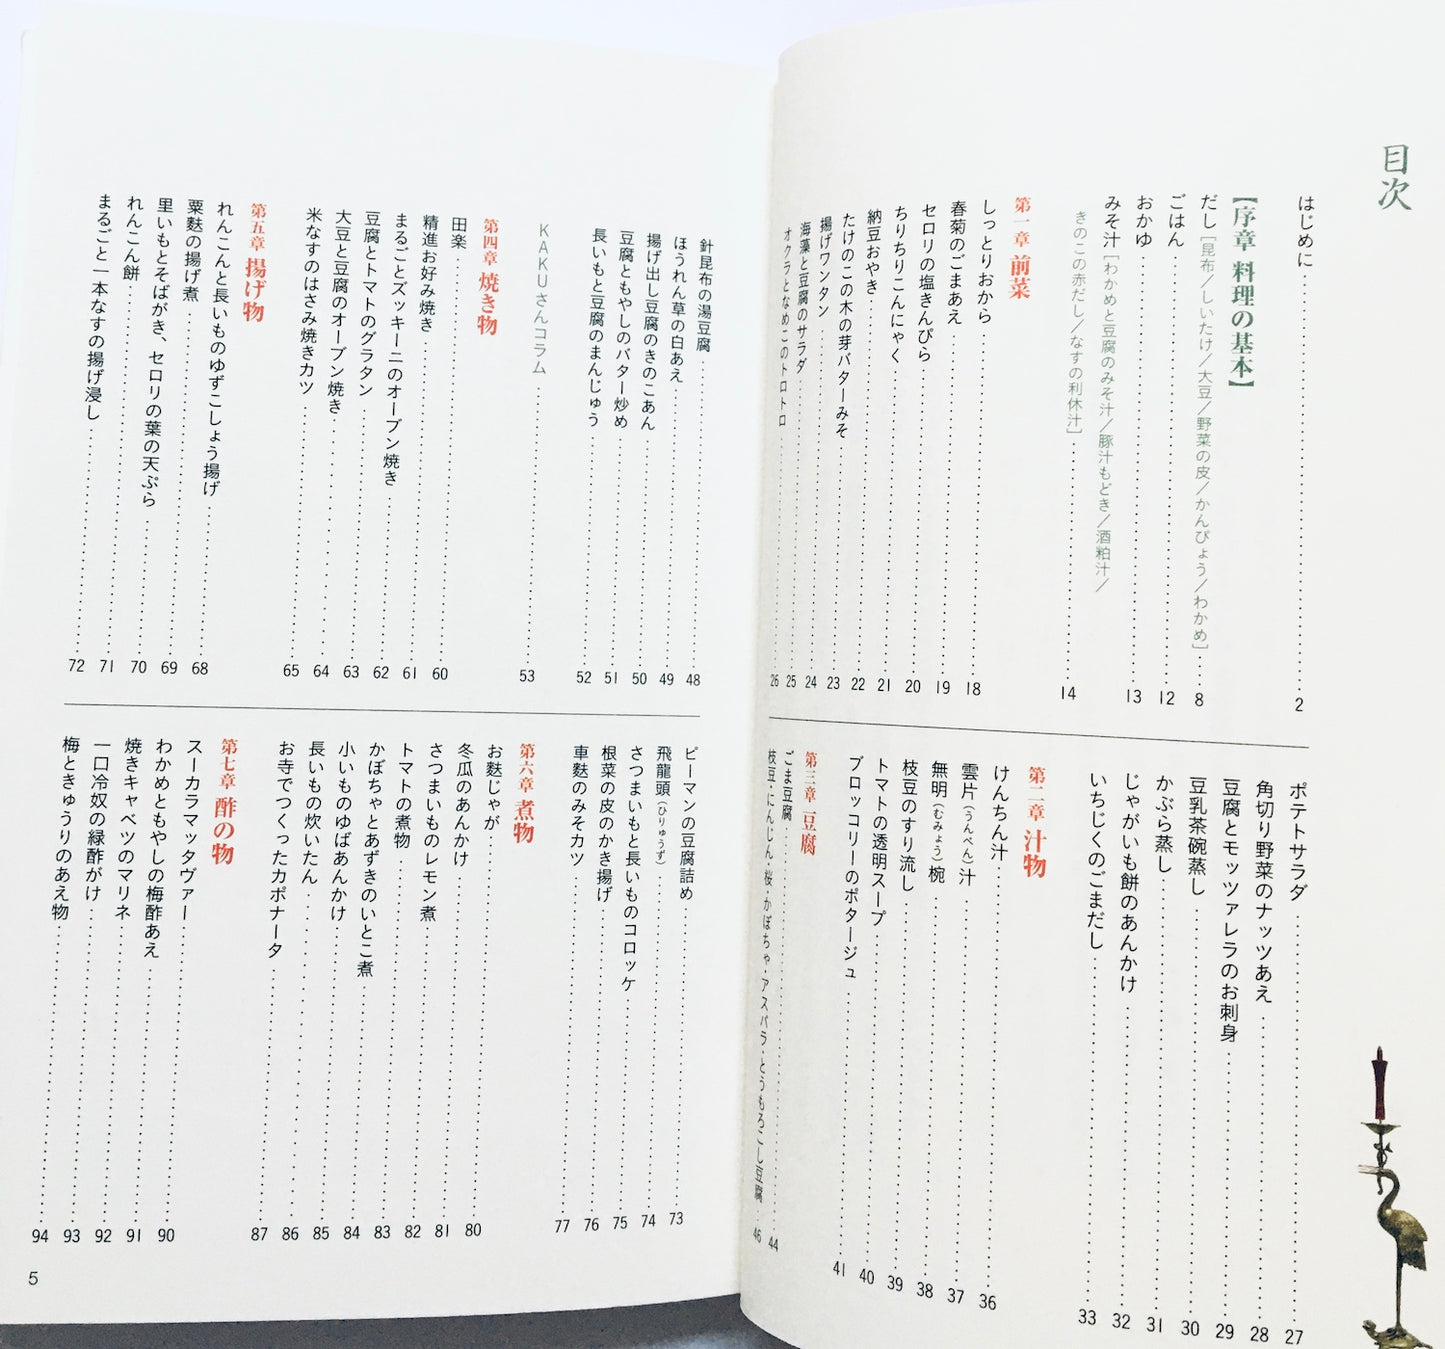 目次
はじめに 2
【序章 料理の基本】
だし[昆布／しいたけ／大豆／野菜の皮／かんぴょう／わかめ] 8
ごはん 12
おかゆ 13
みそ汁[わかめと豆腐のみそ汁／豚汁もどき／酒粕汁／
きのこの赤だし／なすの利休汁] 14
第一章 前菜
しっとりおから 18
春菊のごまあえ 19
セロリの塩きんぴら 20
ちりちりこんにゃく 21
納豆おやき 22
たけのこの木の芽バターみそ 23
揚げワンタン 24
海藻と豆腐のサラダ 25
オクラとなめこのトロトロ 26
ポテトサラダ 27
角切り野菜のナッツあえ 28
豆腐とモッツァレラのお刺身 29
豆乳茶碗蒸し 30
かぶら蒸し 31
じゃがいも餅のあんかけ 32
いちじくのごまだし 33
第二章 汁物
けんちん汁 36
雲片（うんぺん）汁 37
無明（むみょう）椀 38
枝豆のすり流し 39
トマトの透明スープ 40
ブロッコリーのポタージュ 41
第三章 豆腐
ごま豆腐 44
枝豆・にんじん・桜・かぼちゃ・アスパラ・とうもろこし豆腐 46
針昆布の湯豆腐 48
ほうれん草の白あえ 49
揚げ出し豆腐のきのこあん 50
豆腐ともやしのバター炒め 51
長いもと豆腐のまんじゅう 52
KAKUさんコラム 53
第四章 焼き物
田楽 60
精進お好み焼き 61
まるごとズッキーニのオーブン焼き 62
豆腐とトマトのグラタン 63
大豆と豆腐のオーブン焼き 64
米なすのはさみ焼きカツ 65
第五章 揚げ物
れんこんと長いものゆずこしょう揚げ 68
粟麩の揚げ煮 69
里いもとそばがき、セロリの葉の天ぷら 70
れんこん餅 71
まるごと一本なすの揚げ浸し 72
ピーマンの豆腐詰め 73
飛龍頭（ひりゅうず） 74
さつまいもと長いものコロッケ 75
根菜の皮のかき揚げ 76
車麩のみそカツ 77
第六章 煮物
お麩じゃが 80
冬瓜のあんかけ 81
さつまいものレモン煮 82
トマトの煮物 83
かぼちゃとあずきのいとこ煮 84
小いものゆばあんかけ 85
長いもの炊いたん 86
お寺でつくったカポナータ 87
第七章 酢の物
スーカラマッタヴァー 90
わかめともやしの梅酢あえ 91
焼きキャベツのマリネ 92
一口冷奴の緑酢がけ 93
梅ときゅうりのあえ物 94
5